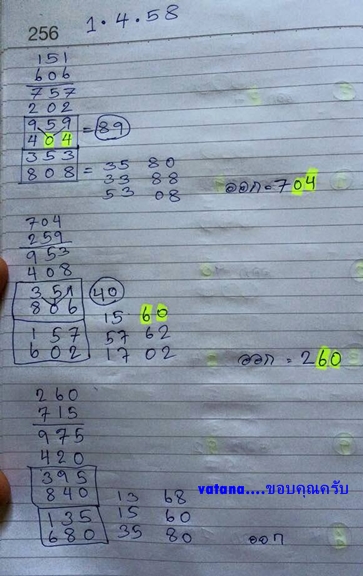 256 1.4.58
151
606
757
202
959 = 89
404
353
808 = 35 80
33 88
53 08
ออก = 704
704
259
953
408
351 40
806
15 60
157 57 62
602 17 02
ออก = 260
260
715
975
420
395
840 13 68
135 15 60
680 35 80
ออก
vatana....ขอบคุณครับ